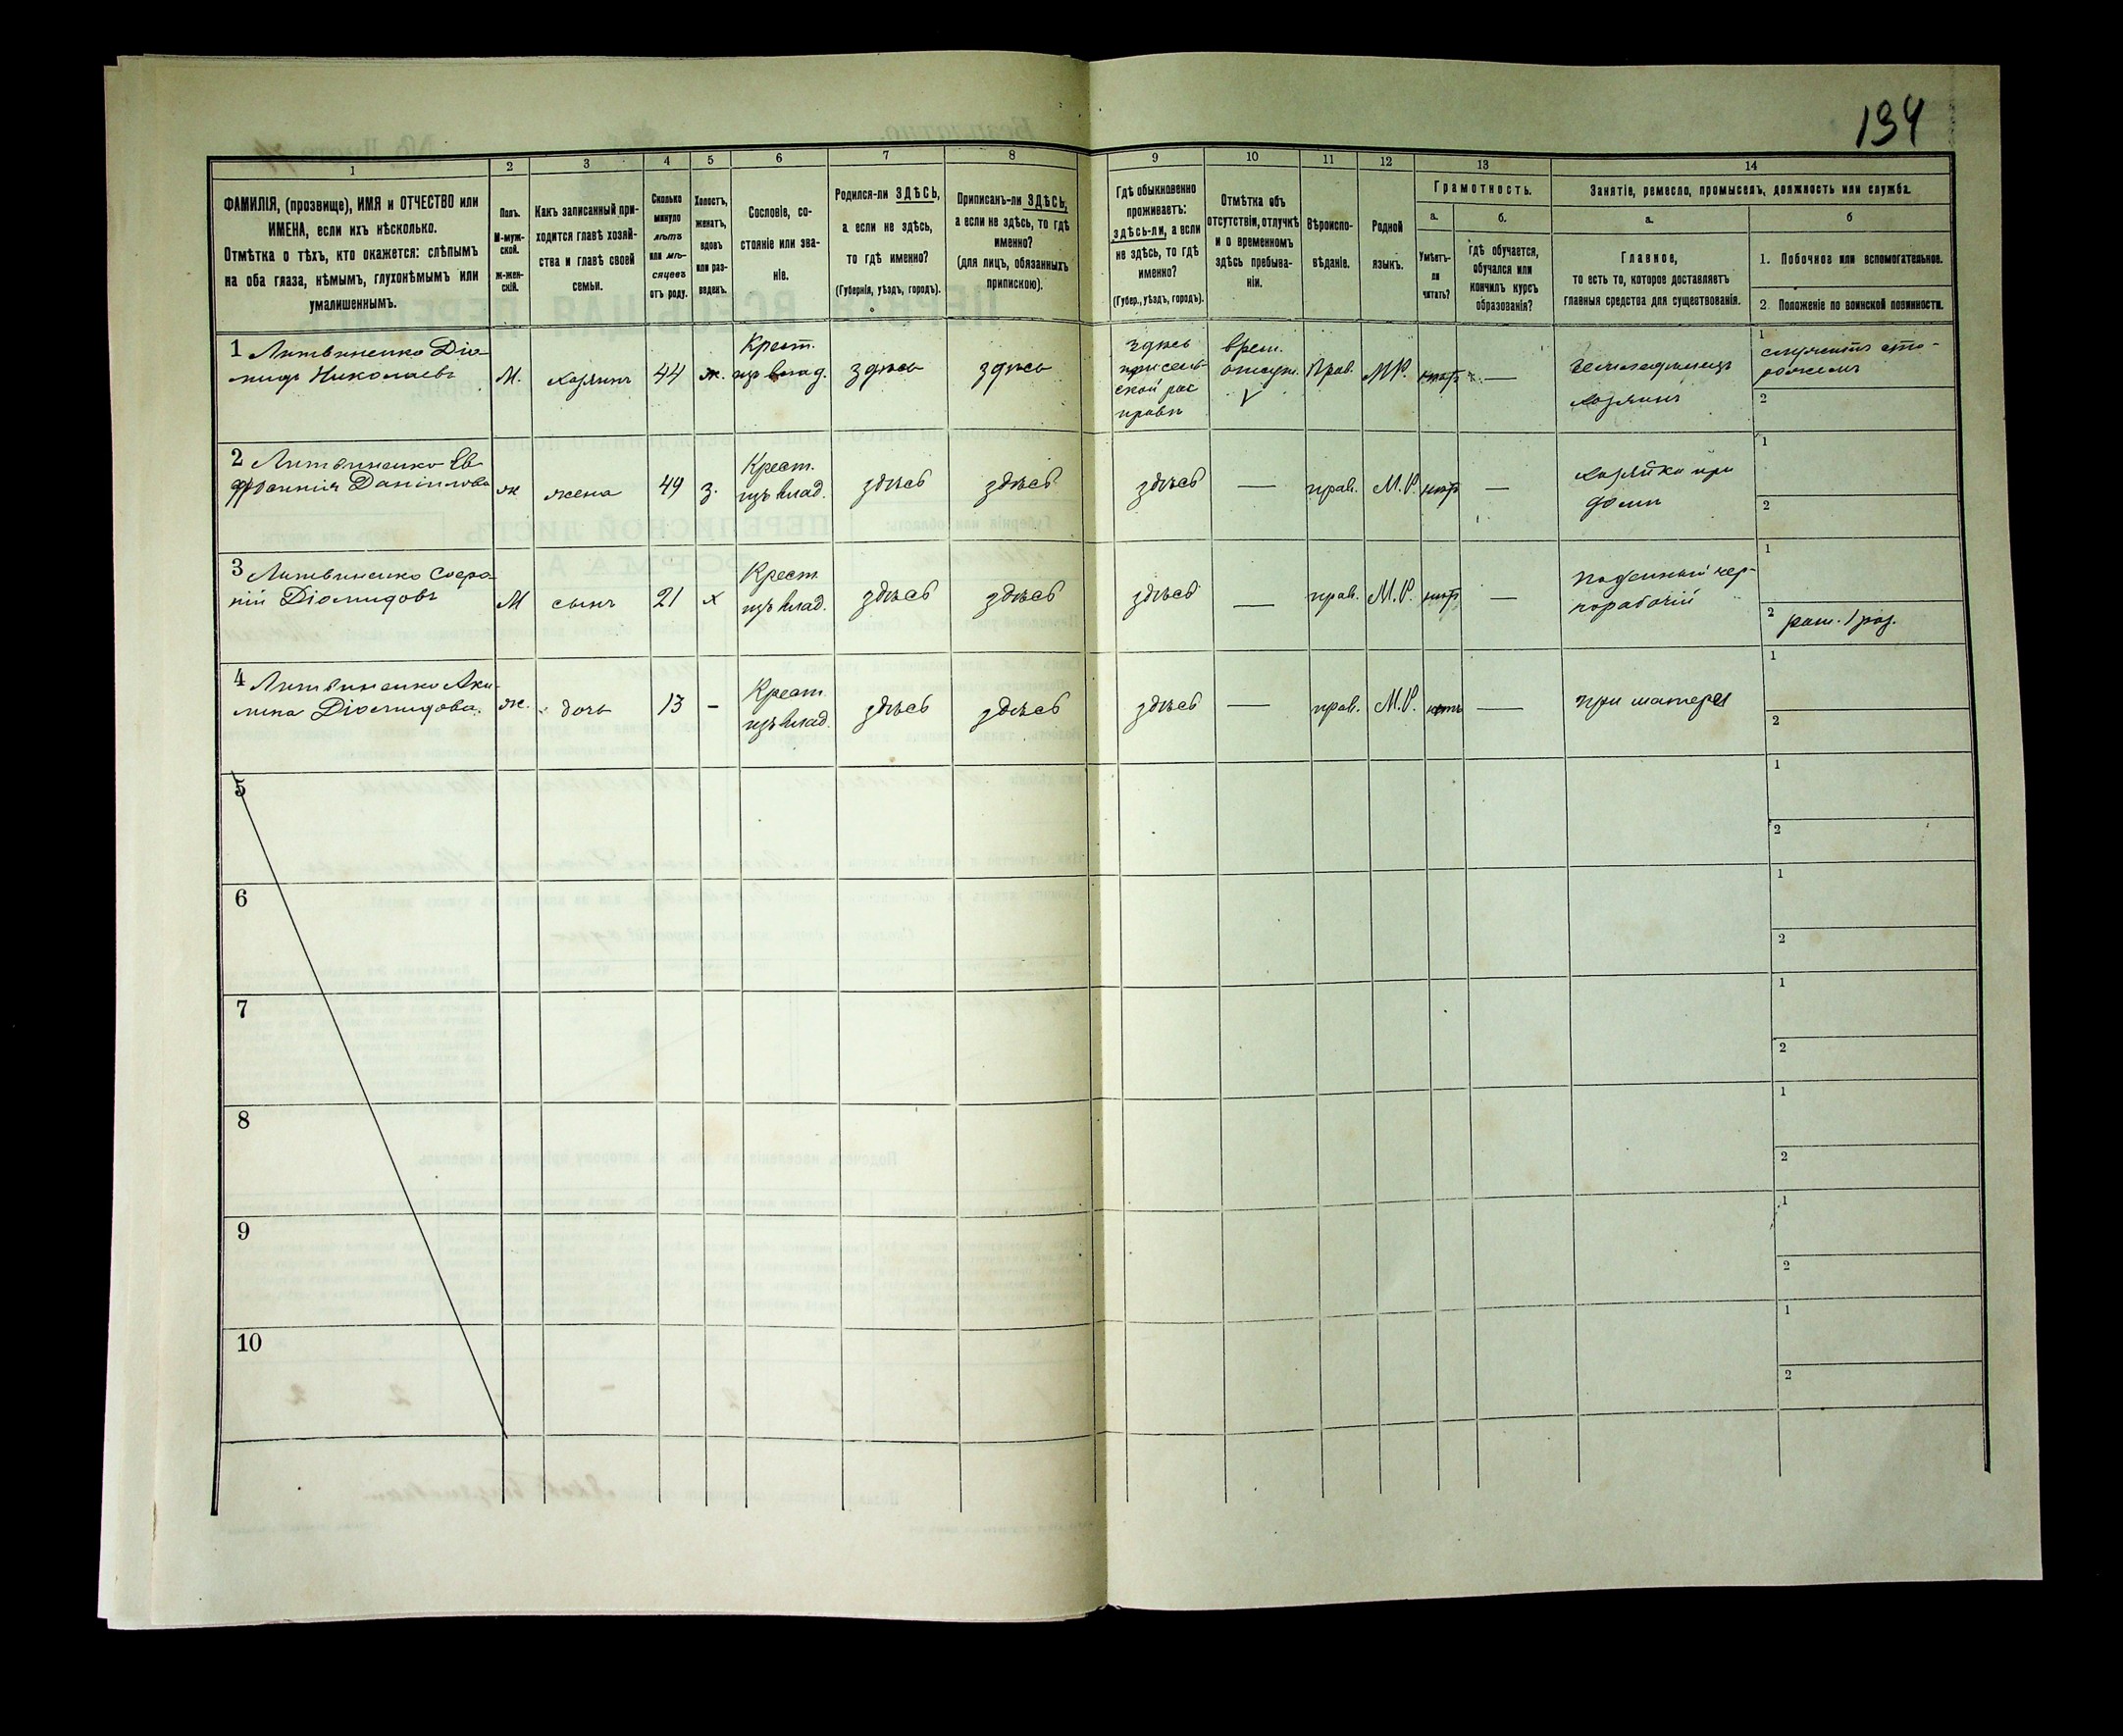 134
1
2
3
4
5
6
7
8
9
10
11
12
13
14
ФАМИЛІЯ, (прозвище), ИМЯ и ОТЧЕСТВО или
ИМЕНА, если ихъ нѣсколько.
Отмѣтка о тѣхъ, кто окажется: слѣпымъ
на оба глаза, нѣмымъ, глухонѣмымъ или
умалишеннымъ.
Полъ.
М-муж-
ской.
Ж-жен-
скій.
Какъ записанный при-
ходится главѣ хозяй-
ства и главѣ своей
семьи.
Сколько
минуло
лѣтъ
или мѣ-
сяцевъ
отъ роду.
Холостъ,
женатъ,
вдовъ
или раз-
веденъ.
Сословіе, со-
стояніе или зва-
ніе.
Родился-ли ЗДѢСЬ,
а если не здѣсь,
то гдѣ именно?
(Губернія, уѣздъ, городъ).
Приписанъ-ли ЗДѢСЬ,
а если не здѣсь, то гдѣ
именно?
(для лицъ, обязанныхъ
припискою).
Гдѣ обыкновенно
проживаетъ:
здѣсь-ли, а если
не здѣсь, то гдѣ
именно?
(Губер., уѣздъ, городъ).
Отмѣтка объ
отсутствіи, отлучкѣ
и о временномъ
здѣсь пребыва-
ніи.
Вѣроиспо-
вѣданіе.
Родной
языкъ.
Грамотность.
а.
б.
Умѣетъ-
ли
читать?
Гдѣ обучается,
обучался или
кончилъ курсъ
образованія?
Занятіе, ремесло, промыселъ, должность или служба.
а.
б
Главное,
то есть то, которое доставляетъ
главныя средства для существованія.
1. Побочное или вспомогательное.
2. Положеніе по воинской повинности.
1 Литвиненко Діо-
мидъ Николаевъ
М.
хозяинъ
44
ж.
Крест.
изъ влад.
здѣсь
здѣсь
здѣсь
при сель-
ской рас
правѣ
врем.
отсут.
V
Прав.
МР.
нѣтъ
—
земледѣлецъ
хозяинъ
1 служитъ сто-
рожемъ
2
2 Литвиненко Ев-
Даніилова
ж
жена
49
з.
Крест.
изъ влад.
здѣсь
здѣсь
здѣсь
—
прав.
М.Р.
нѣтъ
—
хозяйка при
домѣ
1
2
3 Литвиненко
Діомидовъ
М
сынъ
21
х
Крест
изъ влад.
здѣсь
здѣсь
здѣсь
—
прав.
М.Р.
нѣтъ
—
поденный чер-
норабочій
1
2 рат. 1 раз.
4 Литвиненко Аки-
лина Діомидова.
ж.
дочь
13
-
Крест.
изъ влад.
здѣсь
здѣсь
здѣсь
—
прав.
М.Р.
нѣтъ
—
при матери
1
2
5
1
2
6
1
2
7
1
2
8
1
2
9
1
2
10
1
2